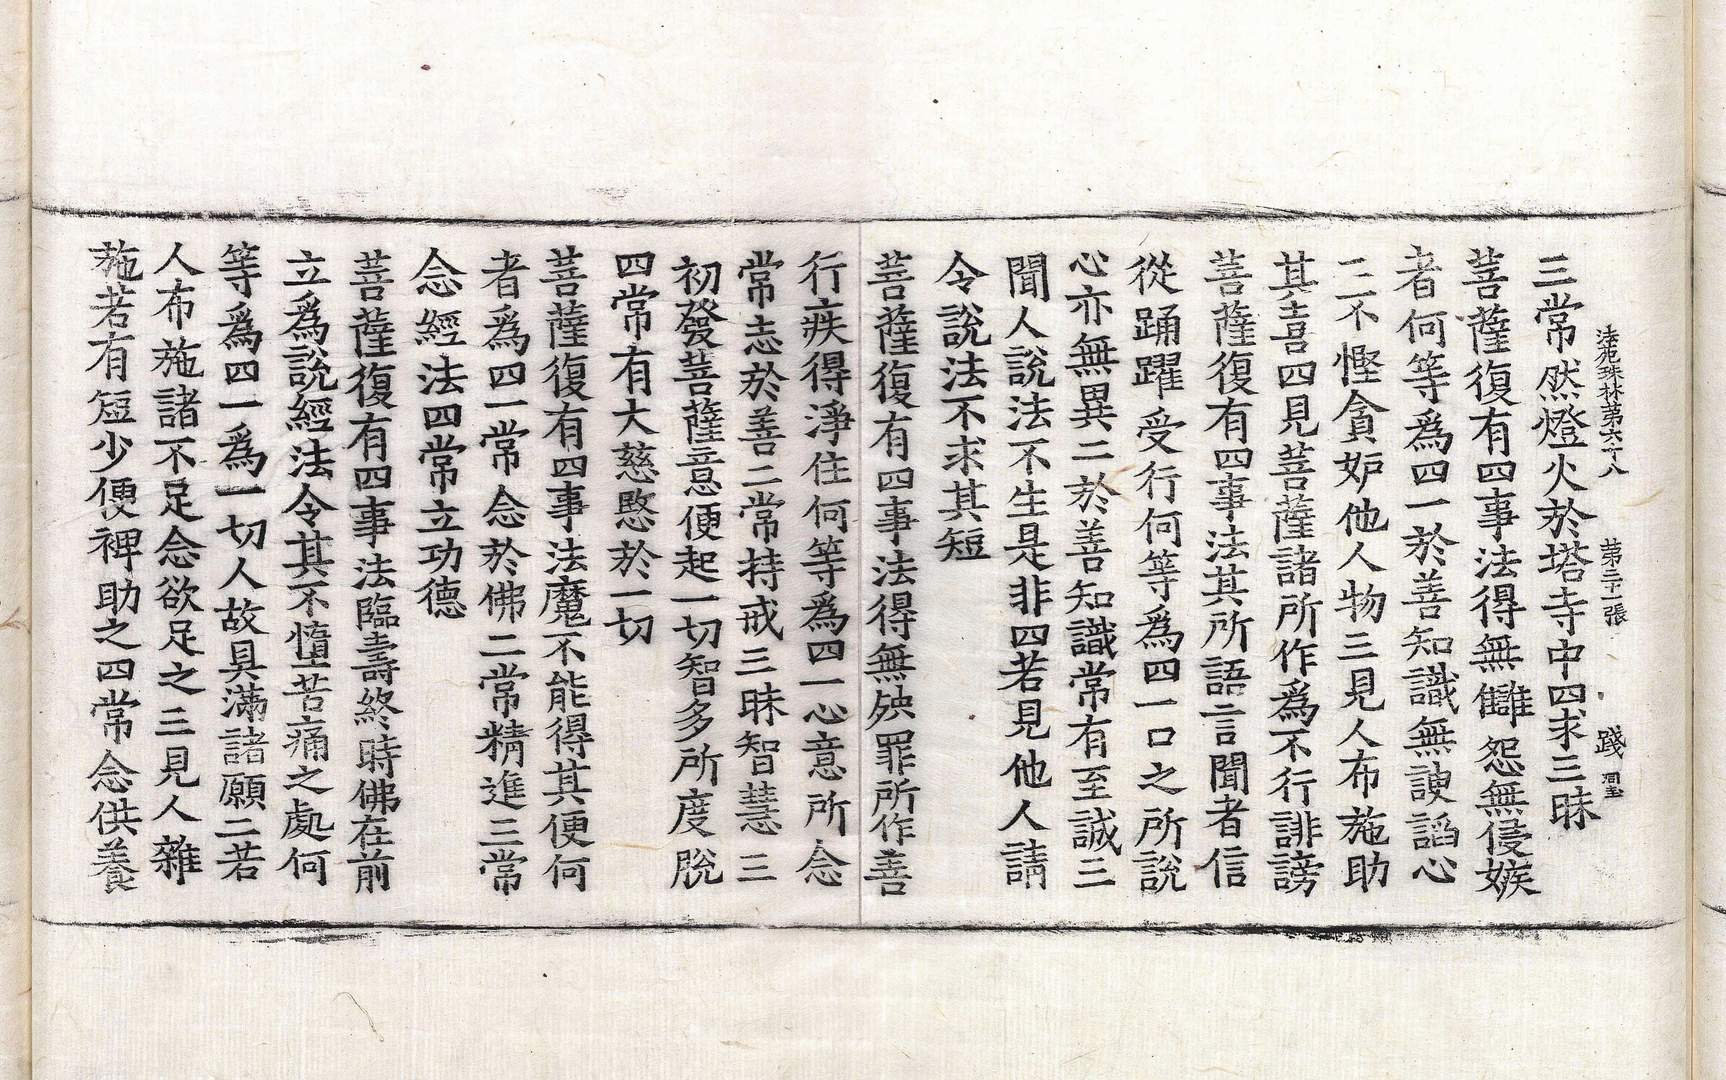 法苑珠林第六十八 第三十一張 踐
三常然燈火於塔寺中四求三昧
菩薩復有四事法得無讎怨無侵嫉
者何等爲四一於善知識無諛謟心
二不慳貪妒他人物三見人布施助
其喜四見菩薩諸所作爲不行誹謗
菩薩復有四事法其所語言聞者信
從踊躍受行何等爲四一口之所說
心亦無異二於善知識常有至誠三
聞人說法不生是非四若見他人請
令說法不求其短
菩薩復有四事法得無殃罪所作善
行疾得淨住何等爲四一心意所念
常志於善二常持戒三昧智慧三
初發菩薩意便起一切智多所度脫
四常有大慈愍於一切
菩薩復有四事法魔不能得其便何
者爲四一常念於佛二常精進三常
念經法四常立功德
菩薩復有四事法臨壽終時佛在前
立爲說經法令其不墮苦痛之處何
等爲四一爲一切人故具滿諸願二若
人布施諸不足念欲足之三見人雜
施若有短少便裨助之四常念供養